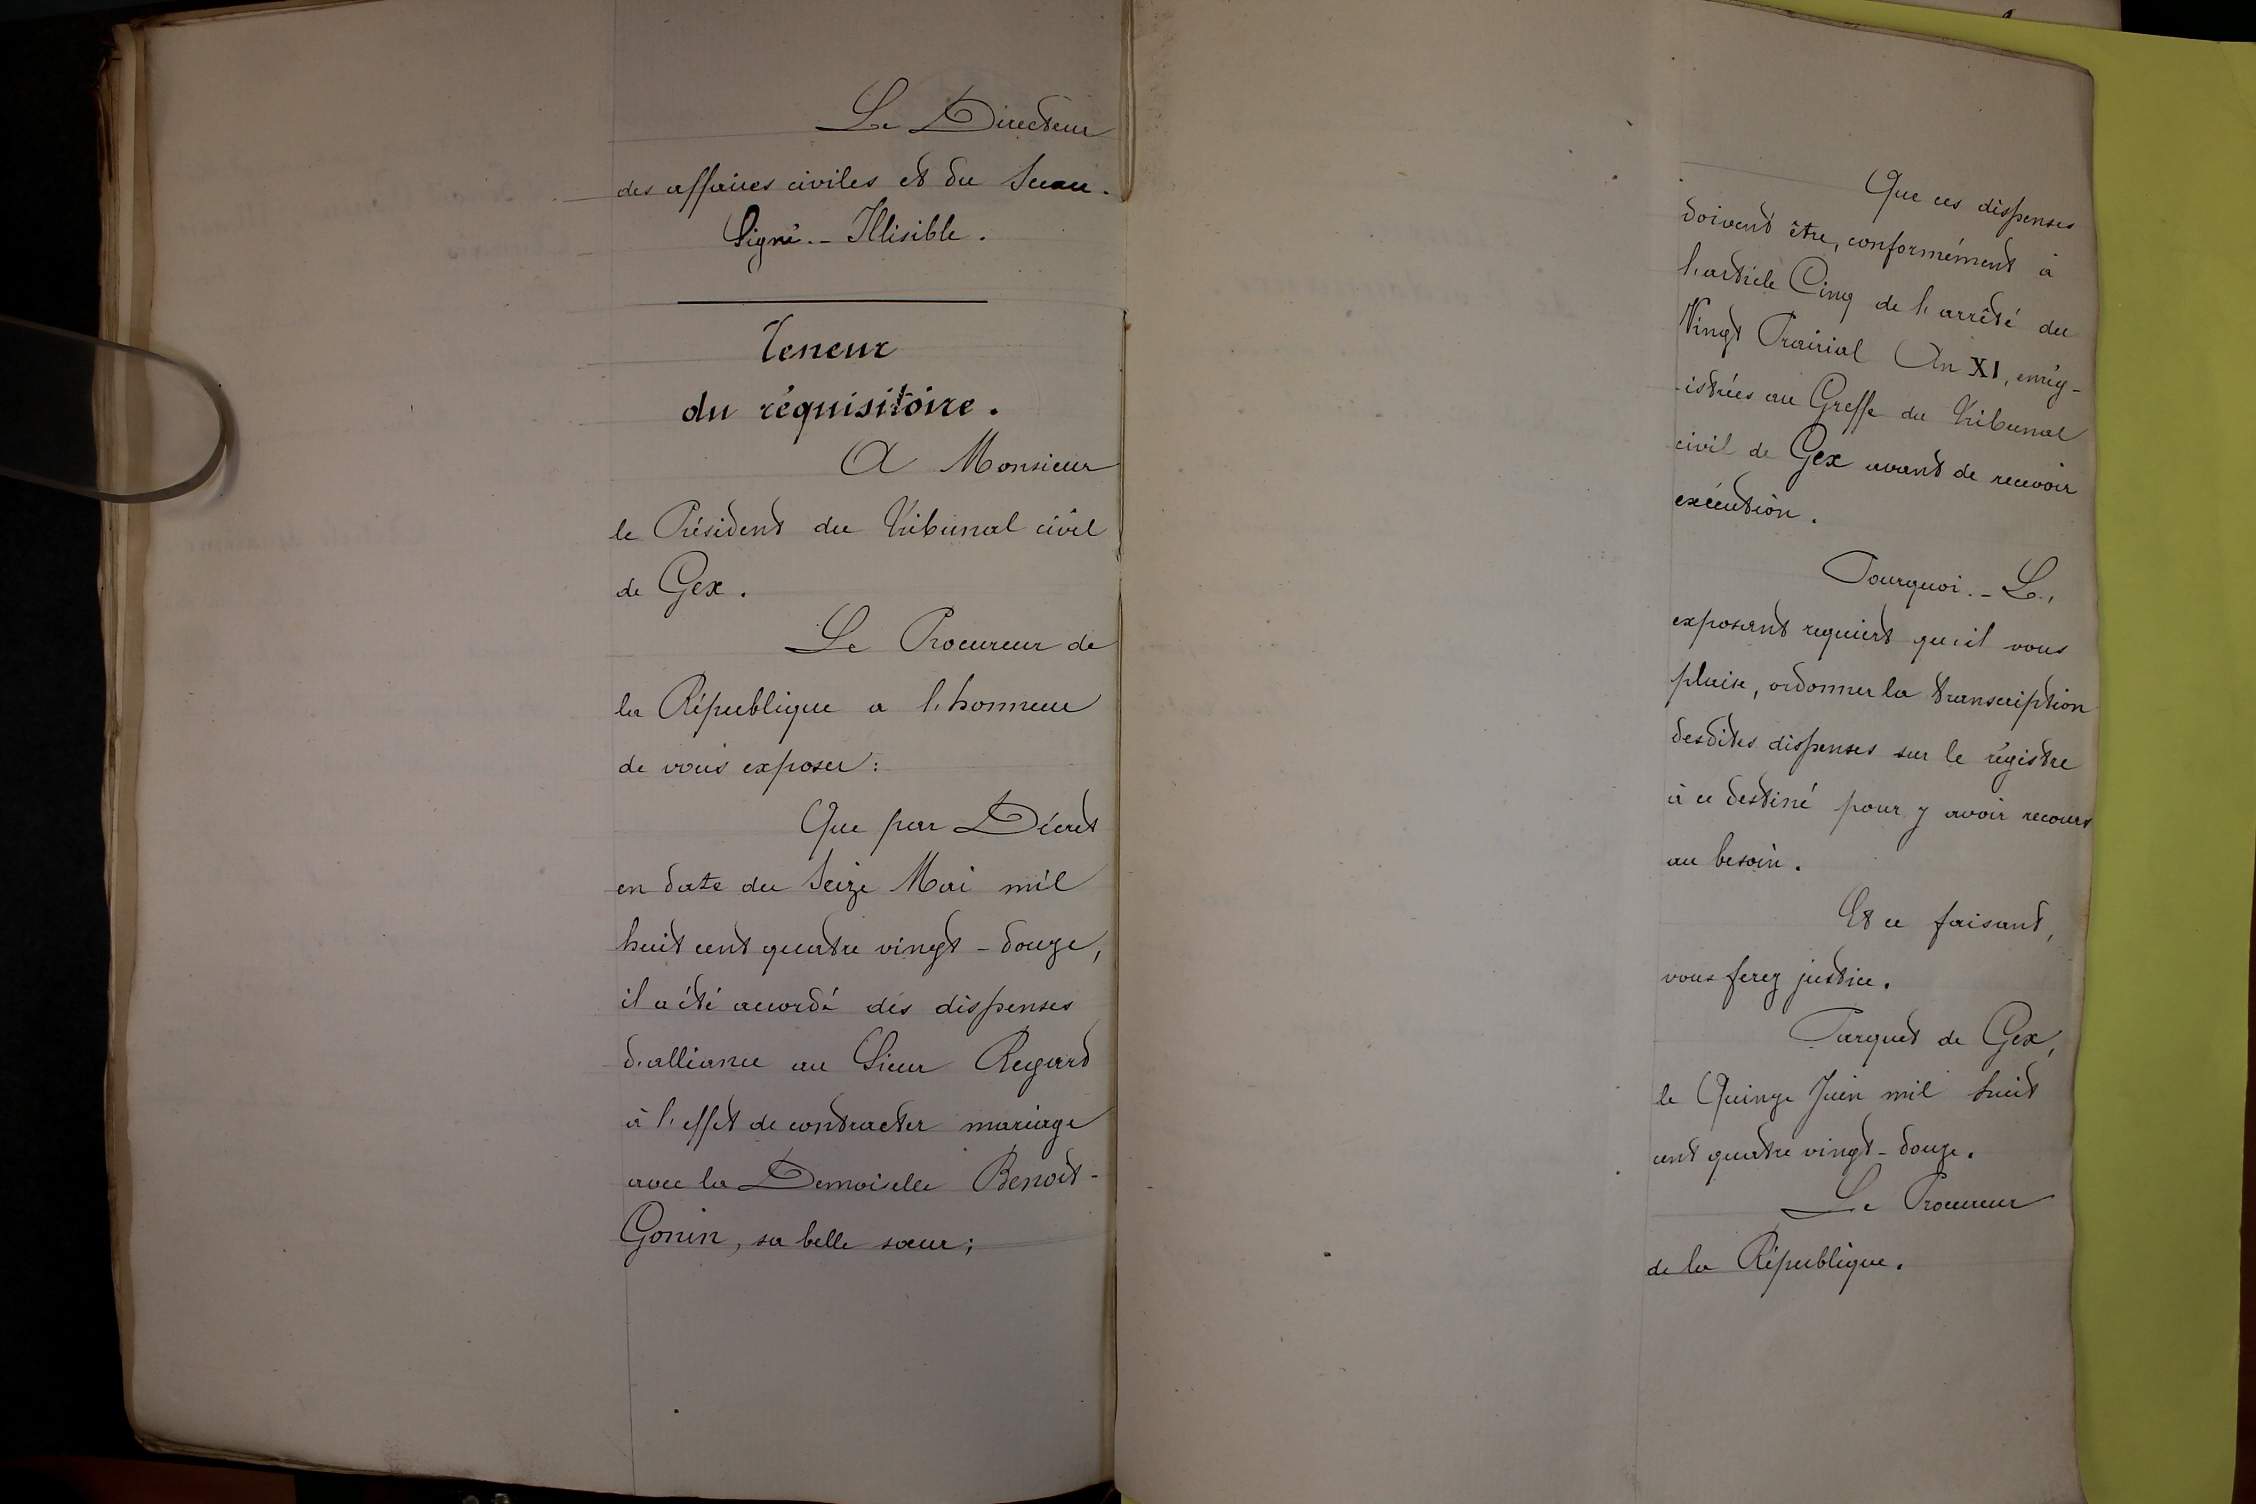 Le Directeur
des affaires civiles et du Sceau.
Signé. - Illisible.
Teneur
du réquisitoire.
A Monsieur
le Président du Tribunal civil
de Gex.
Le Procureur de
la République a l'honneur
de vous exposer :
Que par Décret
en date du Seize Mai mil
huit cent quatre vingt - douze,
il a été accordé des dispenses
d'alliance au Sieur Regard
à l'effet de contracter mariage
avec la Demoiselle Benoit -
Gonin, sa belle sœur ;
Que ces dispenses
doivent être, conformément à
l'article Cinq de l'arrêté du
Vingt Prairial An XI, enrég-
-istrées au Greffe du Tribunal
civil de Gex avant de recevoir
exécution.
Pourquoi. - L'
exposant requiert qu'il vous
plaise, ordonner la transcription
desdites dispenses sur le régistre
à ce destiné pour y avoir recours
au besoin.
Et ce faisant,
vous ferez justice.
Parquet de Gex,
le Quinze Juin mil huit
cent quatre vingt - douze.
Le Procureur
de la République.